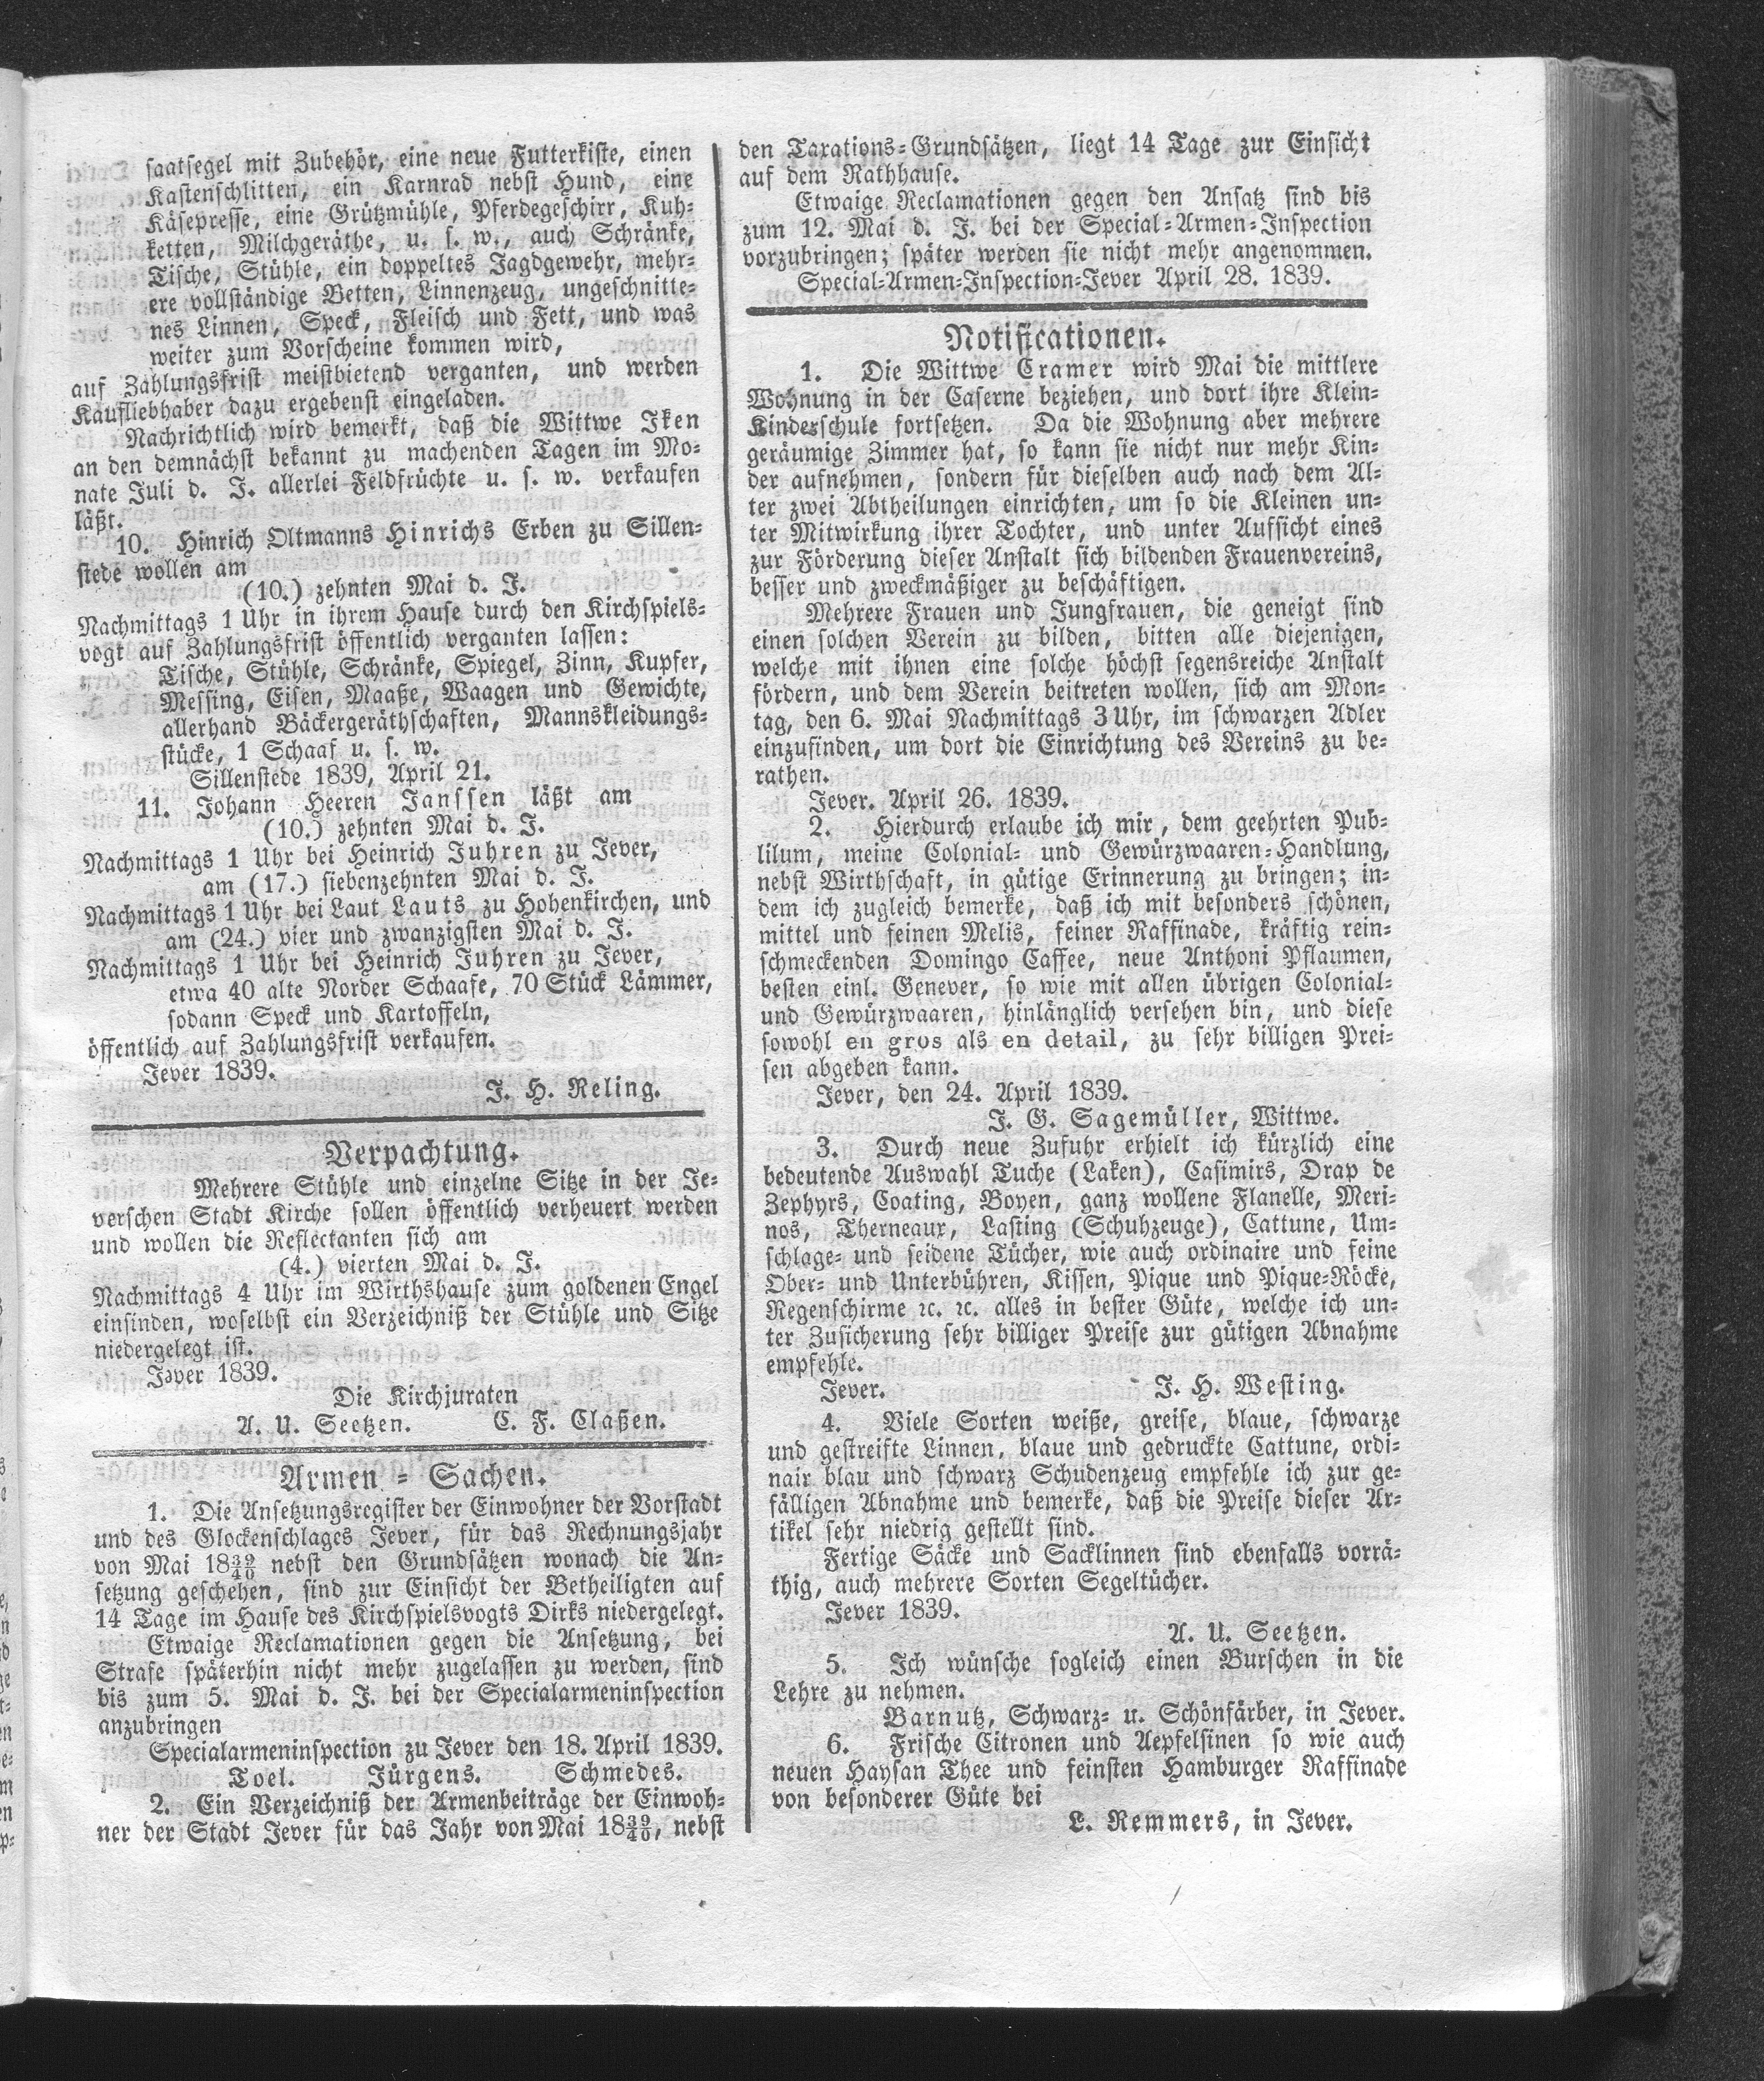 saatsegel mit Zubehör, eine neue Futterkiste, einen
Kastenschlitten, ein Karnrad nebst Hund, eine
Käsepresse, eine Grützmühle, Pferdegeschirr, Kuh-
ketten, Milchgeräthe, u. s. w., auch Schränke,
Tische, Stühle, ein doppeltes Jagdgewehr, mehr-
ere vollständige Betten, Linnenzeug, ungeschnitte-
nes Linnen, Speck, Fleisch und Fett, und was
weiter zum Vorscheine kommen wird,
auf Zahlungsfrist meistbietend verganten, und werden
Kaufliebhaber dazu ergebenst eingeladen.
Nachrichtlich wird bemerkt, daß die Wittwe Iken
an den demnächst bekannt zu machenden Tagen im Mo-
nate Juli d. J. allerlei Feldfrüchte u. s. w. verkaufen
läßt.
10. Hinrich Oltmanns Hinrichs Erben zu Sillen-
stede wollen am
(10.) zehnten Mai d. J.
Nachmittags 1 Uhr in ihrem Hause durch den Kirchspiels-
vogt auf Zahlungsfrist öffentlich verganten lassen:
Tische, Stühle, Schränke, Spiegel, Zinn, Kupfer,
Messing, Eisen, Maaße, Waagen und Gewichte,
allerhand Bäckergeräthschaften, Mannskleidungs-
stücke, 1 Schaaf u. s. w.
Sillenstede 1839, April 21.
11. Johann Heeren Janssen läßt am
(10.) zehnten Mai d. J.
Nachmittags 1 Uhr bei Heinrich Juhren zu Jever,
am (17.) siebenzehnten Mai d. J.
Nachmittags 1 Uhr bei Laut Lauts zu Hohenkirchen, und
am (24.) vier und zwanzigsten Mai d. J.
Nachmittags 1 Uhr bei Heinrich Juhren zu Jever,
etwa 40 alte Norder Schaafe, 70 Stück Lämmer,
sodann Speck und Kartoffeln,
öffentlich auf Zahlungsfrist verkaufen.
Jever 1839.
J. H. Reling.
Verpachtung.
Mehrere Stühle und einzelne Sitze in der Je-
verschen Stadt Kirche sollen öffentlich verheuert werden
und wollen die Reflectanten sich am
(4.) vierten Mai d. J.
Nachmittags 4 Uhr im Wirthshause zum goldenen Engel
einfinden, woselbst ein Verzeichniß der Stühle und Sitze
niedergelegt ist.
Jever 1839.
Die Kirchjuraten
A. U. Seetzen. C. F. Claßen.
Armen-Sachen.
1. Die Ansetzungsregister der Einwohner der Vorstadt
und des Glockenschlages Jever, für das Rechnungsjahr
von Mai 18 39/40 nebst den Grundsätzen wonach die An-
setzung geschehen, sind zur Einsicht der Betheiligten auf
14 Tage im Hause des Kirchspielsvogts Dirks niedergelegt.
Etwaige Reclamationen gegen die Ansetzung, bei
Strafe späterhin nicht mehr zugelassen zu werden, sind
bis zum 5. Mai d. J. bei der Specialarmeninspection
anzubringen
Specialarmeninspection zu Jever den 18. April 1839.
Toel. Jürgens. Schmedes.
2. Ein Verzeichniß der Armenbeiträge der Einwoh-
ner der Stadt Jever für das Jahr von Mai 18 39/40, nebst
den Taxations-Grundsätzen, liegt 14 Tage zur Einsicht
auf dem Rathhause.
Etwaige Reclamationen gegen den Ansatz sind bis
zum 12. Mai d. J. bei der Special-Armen-Inspection
vorzubringen; später werden sie nicht mehr angenommen.
Special-Armen-Inspection-Jever April 28. 1839.
Notificationen.
1. Die Wittwe Cramer wird Mai die mittlere
Wohnung in der Caserne beziehen, und dort ihre Klein-
Kinderschule fortsetzen. Da die Wohnung aber mehrere
geräumige Zimmer hat, so kann sie nicht nur mehr Kin-
der aufnehmen, sondern für dieselben auch nach dem Al-
ter zwei Abtheilungen einrichten, um so die Kleinen un-
ter Mitwirkung ihrer Tochter, und unter Aufsicht eines
zur Förderung dieser Anstalt sich bildenden Frauenvereins,
besser und zweckmäßiger zu beschäftigen.
Mehrere Frauen und Jungfrauen, die geneigt sind
einen solchen Verein zu bilden, bitten alle diejenigen,
welche mit ihnen eine solche höchst segensreiche Anstalt
fördern, und dem Verein beitreten wollen, sich am Mon-
tag, den 6. Mai Nachmittags 3 Uhr, im schwarzen Adler
einzufinden, um dort die Einrichtung des Vereins zu be-
rathen.
Jever. April 26. 1839.
2. Hierdurch erlaube ich mir, dem geehrten Pub-
lilum, meine Colonial- und Gewürzwaaren-Handlung,
nebst Wirthschaft, in gütige Erinnerung zu bringen; in-
dem ich zugleich bemerke, daß ich mit besonders schönen,
mittel und feinen Melis, feiner Raffinade, kräftig rein-
schmeckenden Domingo Caffee, neue Anthoni Pflaumen,
besten einl. Genever, so wie mit allen übrigen Colonial-
und Gewürzwaaren, hinlänglich versehen bin, und diese
sowohl en gros als en detail, zu sehr billigen Prei-
sen abgeben kann.
Jever, den 24. April 1839.
J. G. Sagemüller, Wittwe.
3. Durch neue Zufuhr erhielt ich kürzlich eine
bedeutende Auswahl Tuche (Laken), Casimirs, Drap de
Zephyrs, Coating, Boyen, ganz wollene Flanelle, Meri-
nos, Therneaux, Lasting (Schuhzeuge), Cattune, Um-
schlage- und seidene Tücher, wie auch ordinaire und feine
Ober- und Unterbühren, Kissen, Pique und Pique-Röcke,
Regenschirme ꝛc. ꝛc. alles in bester Güte, welche ich un-
ter Zusicherung sehr billiger Preise zur gütigen Abnahme
empfehle.
Jever. J. H. Westing.
4. Viele Sorten weiße, greise, blaue, schwarze
und gestreifte Linnen, blaue und gedruckte Cattune, ordi-
nair blau und schwarz Schudenzeug empfehle ich zur ge-
fälligen Abnahme und bemerke, daß die Preise dieser Ar-
tikel sehr niedrig gestellt sind.
Fertige Säcke und Sacklinnen sind ebenfalls vorrä-
thig, auch mehrere Sorten Segeltücher.
Jever 1839.
A. U. Seetzen.
5. Ich wünsche sogleich einen Burschen in die
Lehre zu nehmen.
Barnutz, Schwarz- u. Schönfärber, in Jever.
6. Frische Citronen und Aepfelsinen so wie auch
neuen Haysan Thee und feinsten Hamburger Raffinade
von besonderer Güte bei
L. Remmers, in Jever.